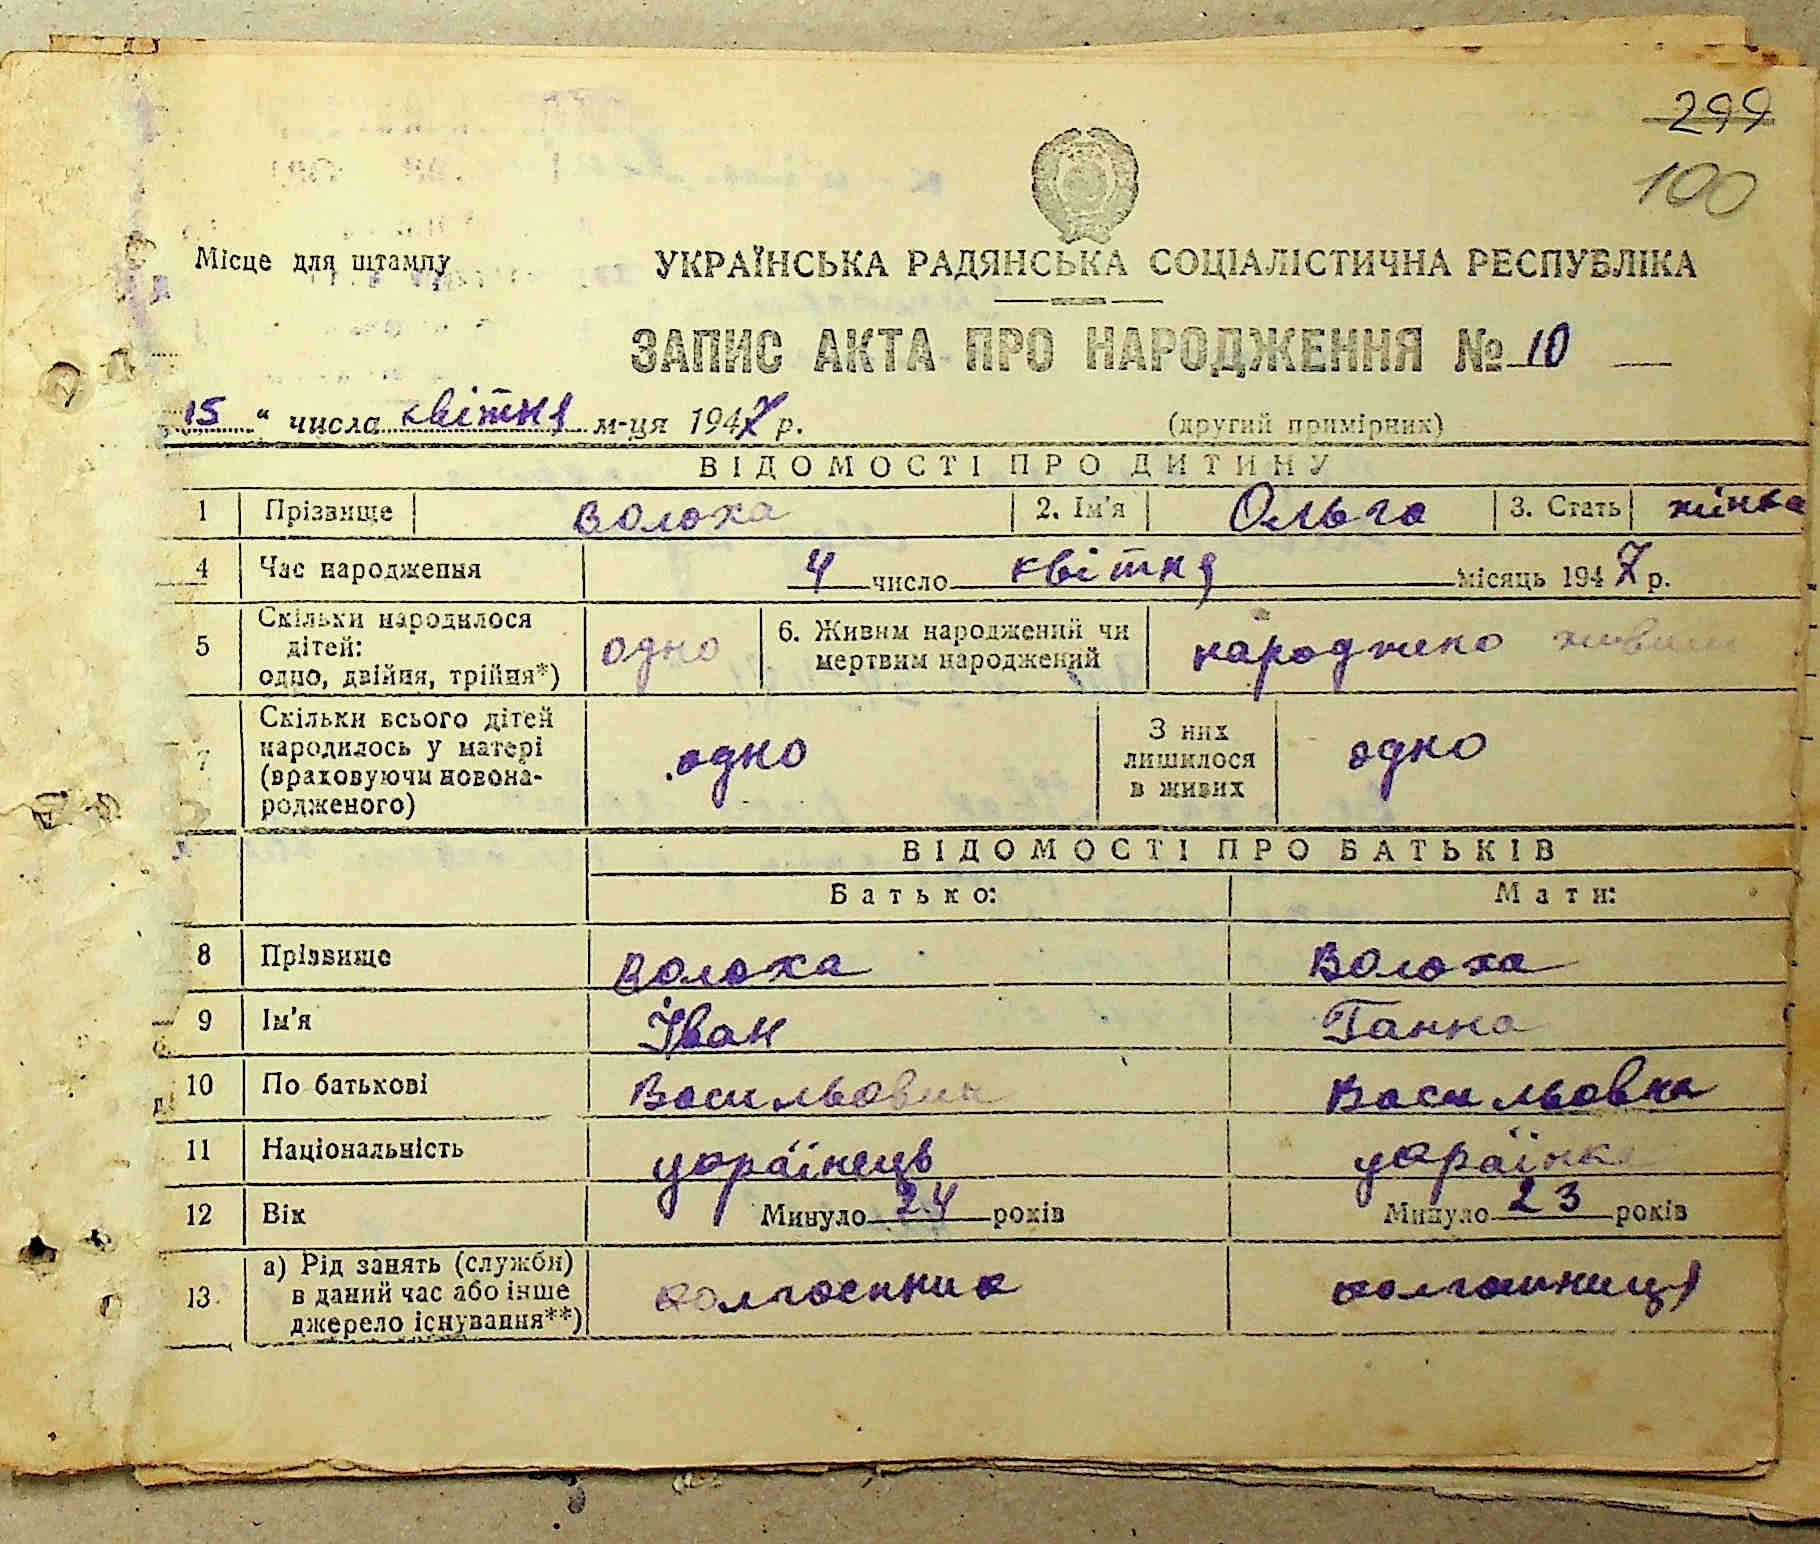 299
100
Місце для штампу
УКРАЇНСЬКА РАДЯНСЬКА СОЦІАЛІСТИЧНА РЕСПУБЛІКА
ЗАПИС АКТА ПРО НАРОДЖЕННЯ № 10
15 " числа квітня м-ця 1947 р. (другий примірник)
ВІДОМОСТІ ПРО ДИТИНУ
1 Прізвище Волоха 2. Ім'я Ольга 3. Стать жінка
4 Час народження 4 число квітня місяць 1947 р.
5 Скільки народилося дітей: одно, двійня, трійня*) одно 6. Живим народжений чи мертвим народжений народжено живим
7 Скільки всього дітей народилось у матері (враховуючи новонародженого) одно З них лишилося в живих одно
ВІДОМОСТІ ПРО БАТЬКІВ
Батько: Мати:
8 Прізвище Волоха Волоха
9 Ім'я Іван Ганна
10 По батькові Васильович Васильовна
11 Національність українець українка
12 Вік Минуло 24 років Минуло 23 років
13. а) Рід занять (служби) в даний час або інше джерело існування**) колгоспник колгошниця